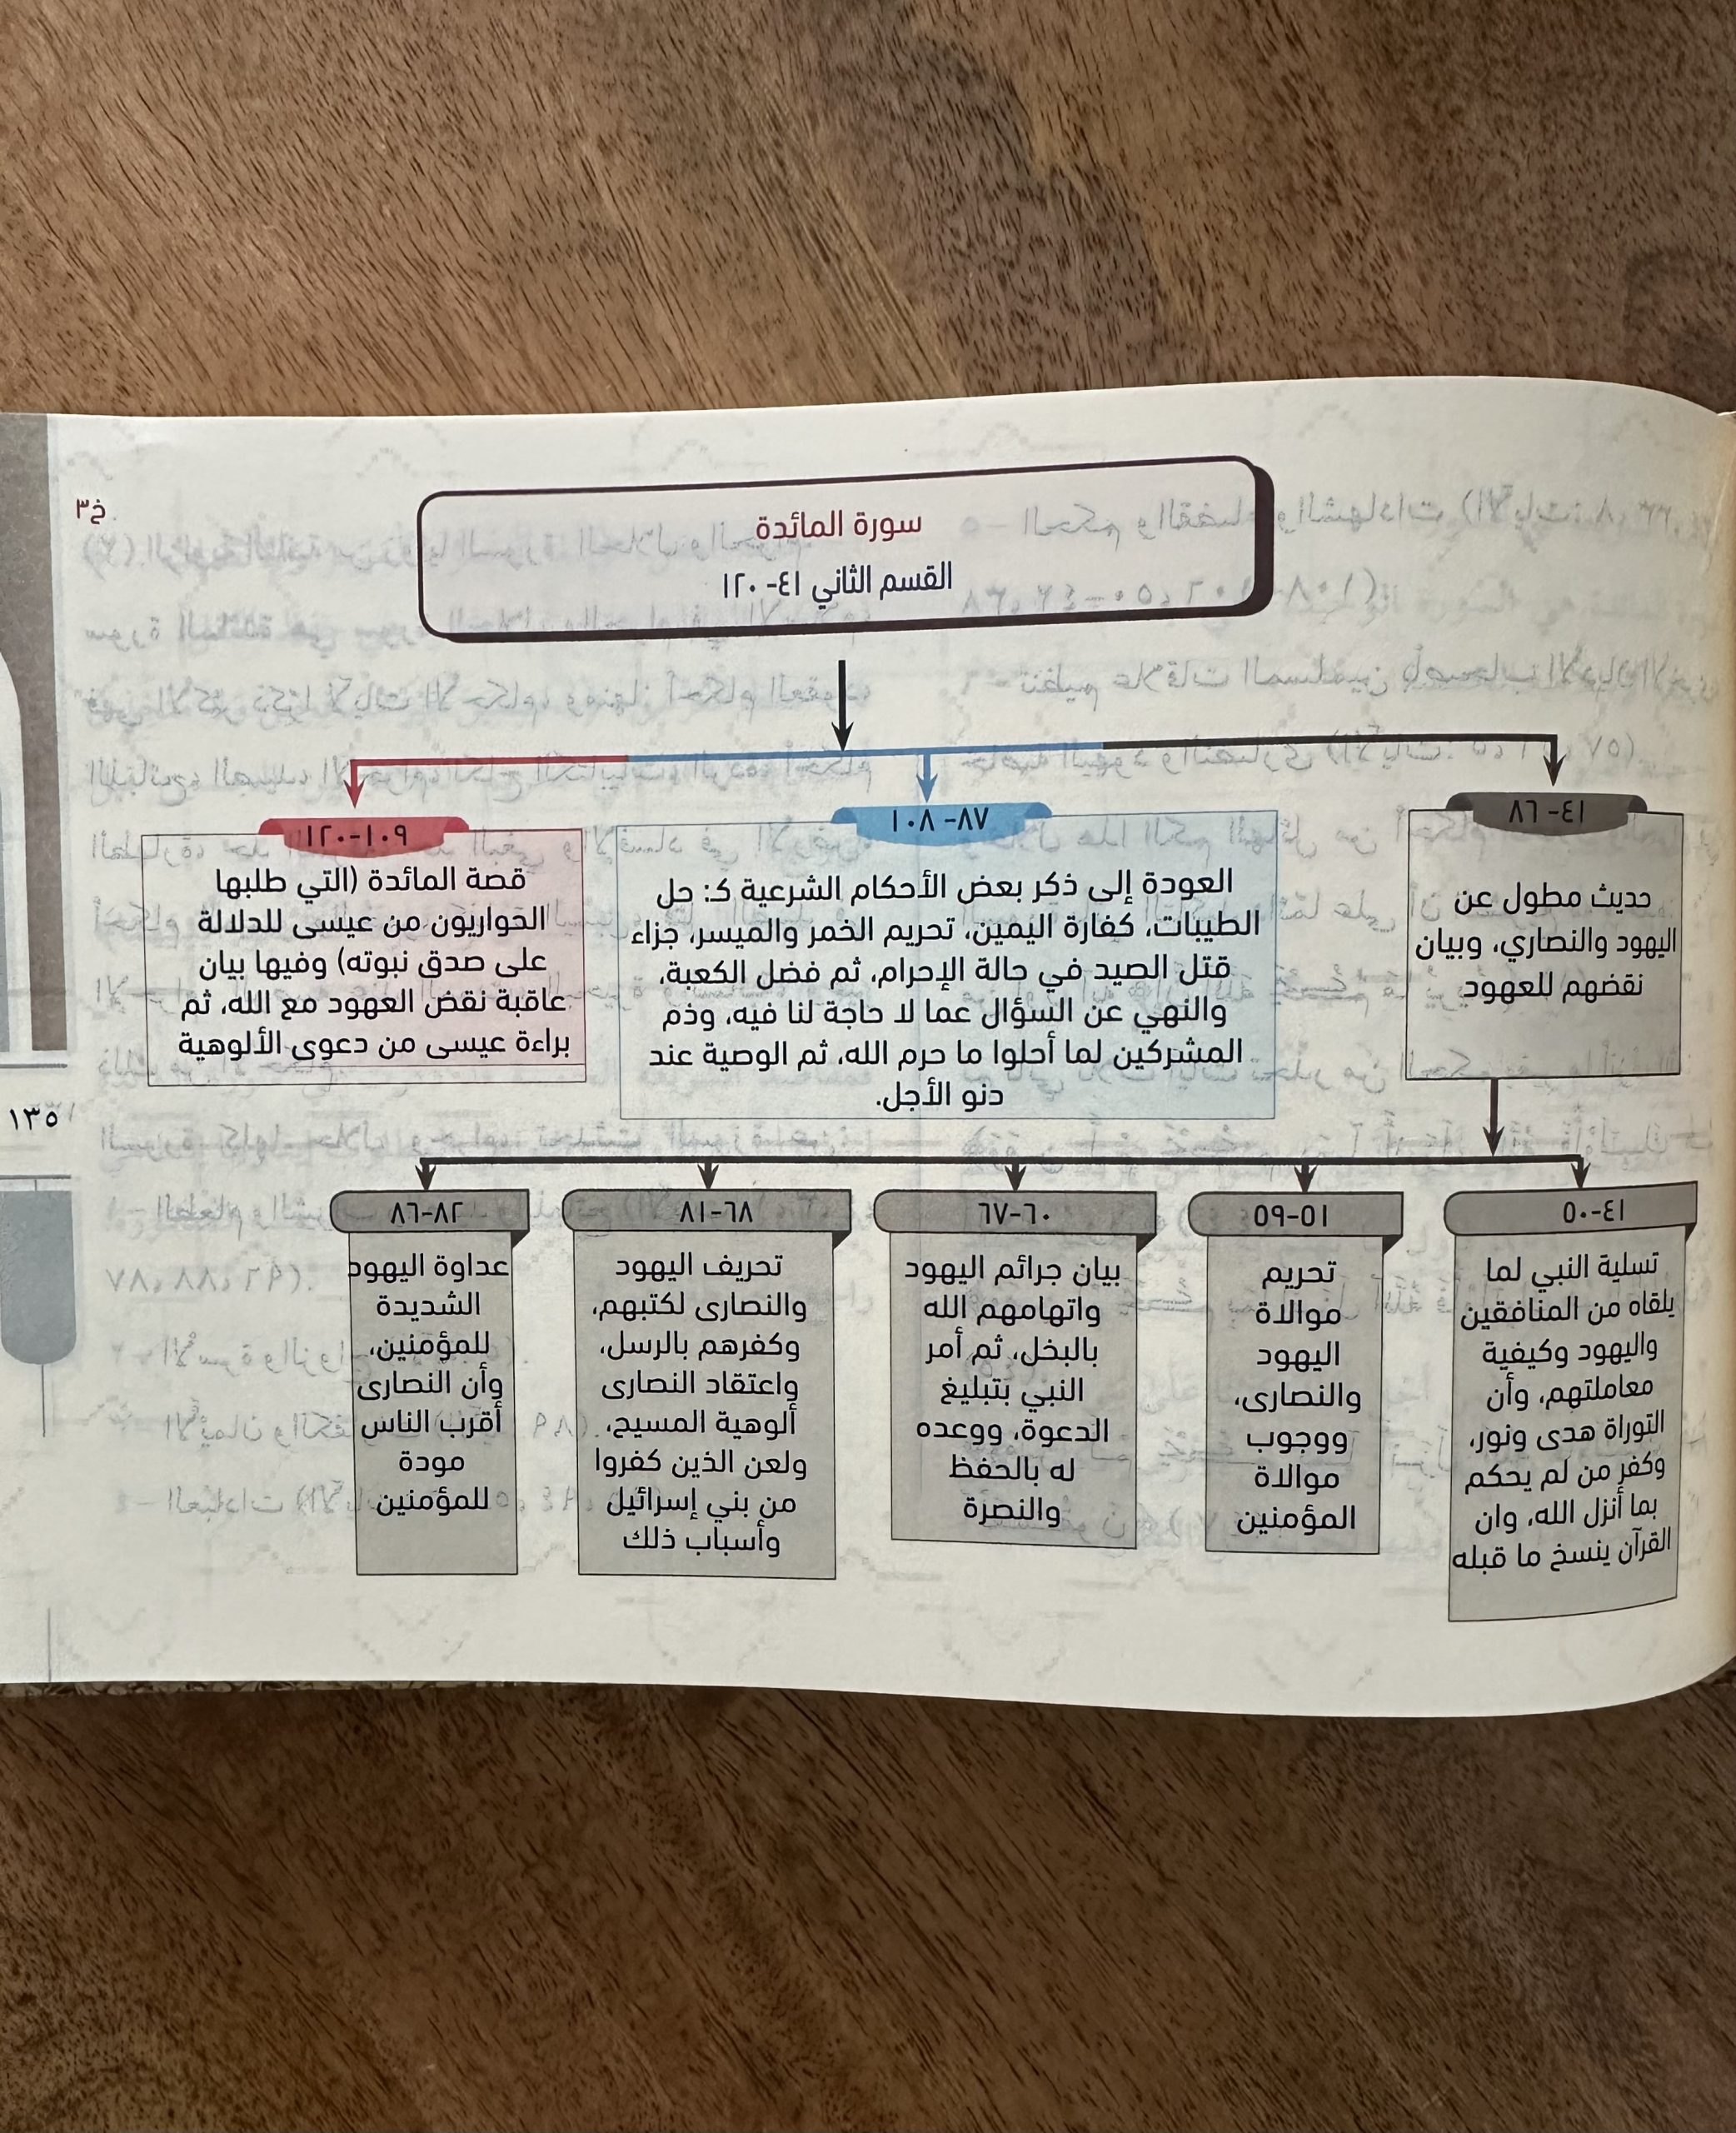 خ٣
سورة المائدة
القسم الثاني ٤١- ١٢٠
٤١- ٨٦
حديث مطول عن
اليهود والنصاري، وبيان
نقضهم للعهود
٨٧- ١٠٨
العودة إلى ذكر بعض الأحكام الشرعية كـ: حل
الطيبات، كفارة اليمين، تحريم الخمر والميسر، جزاء
قتل الصيد في حالة الإحرام، ثم فضل الكعبة،
والنهي عن السؤال عما لا حاجة لنا فيه، وذم
المشركين لما أحلوا ما حرم الله، ثم الوصية عند
دنو الأجل.
١٠٩-١٢٠
قصة المائدة (التي طلبها
الحواريون من عيسى للدلالة
على صدق نبوته) وفيها بيان
عاقبة نقض العهود مع الله، ثم
براءة عيسى من دعوى الألوهية
١٣٥
٤١-٥٠
تسلية النبي لما
يلقاه من المنافقين
واليهود وكيفية
معاملتهم، وأن
التوراة هدى ونور،
وكفر من لم يحكم
بما أنزل الله، وان
القرآن ينسخ ما قبله
٥١-٥٩
تحريم
موالاة
اليهود
والنصارى،
ووجوب
موالاة
المؤمنين
٦٠-٦٧
بيان جرائم اليهود
واتهامهم الله
بالبخل، ثم أمر
النبي بتبليغ
الدعوة، ووعده
له بالحفظ
والنصرة
٦٨-٨١
تحريف اليهود
والنصارى لكتبهم،
وكفرهم بالرسل،
واعتقاد النصارى
ألوهية المسيح،
ولعن الذين كفروا
من بني إسرائيل
وأسباب ذلك
٨٢-٨٦
عداوة اليهود
الشديدة
للمؤمنين،
وأن النصارى
أقرب الناس
مودة
للمؤمنين